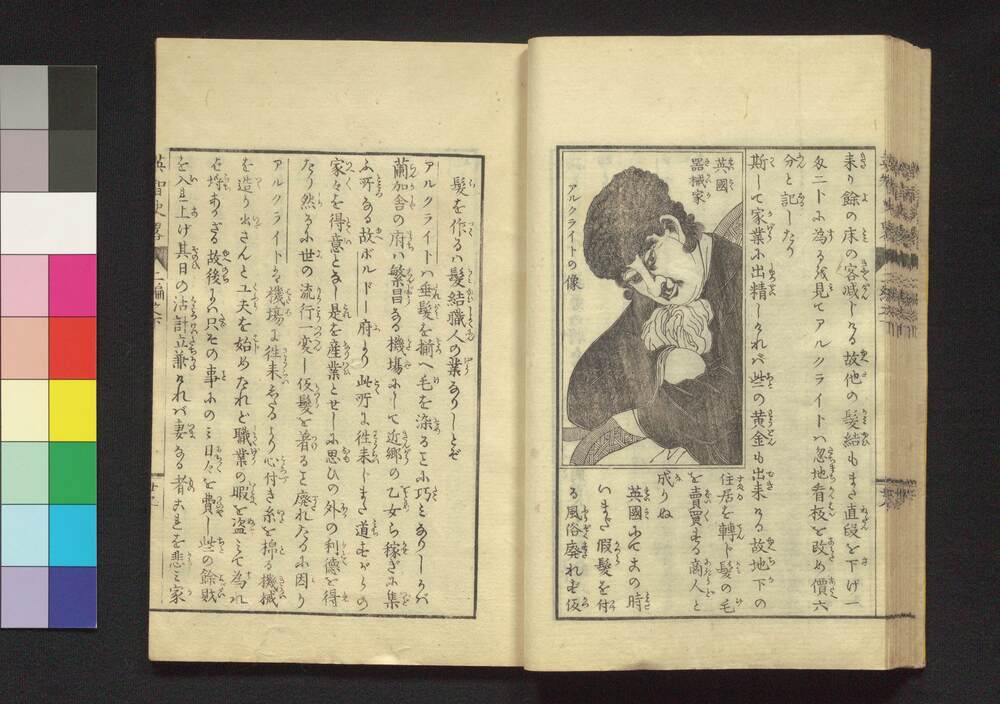 来り余の床の客減じける故他の髮結もまた直段を下げ一
分と記したり
斯して家業に出精しければ些の黄金も出来ける故地下の
住居を轉じ髮の毛
を賣買する商人と
成りぬ
英國にてこの時
いまだ假髮を付
る風俗廃れず仮
英國
器械家
アルクライトの像
髮を作るハ髮結職人の業なりしとぞ
アルクライトハ垂髮を揃へ毛を染ることに巧ミなりしかバ
蘭加舎の府ハ繁昌なる機場にして近郷の乙女ら稼ぎに集
ふ所なる故ボルドー府より此所に往来しまた道すがらの
家々を得意となし是を産業とせしに思ひの外の利德を得
たり然るに世の流行一変し仮髮を着ると廃れたるに因り
アルクライトは機場に往来するより心付き糸を棉る機械
を造り出さんと工夫を始めたれど職業の暇を盗ミて為れ
故後にハ只その事にのミ日々を費し些の餘財
を入れ上げ其日の活計立兼ければ妻なる者これを悲ミ家